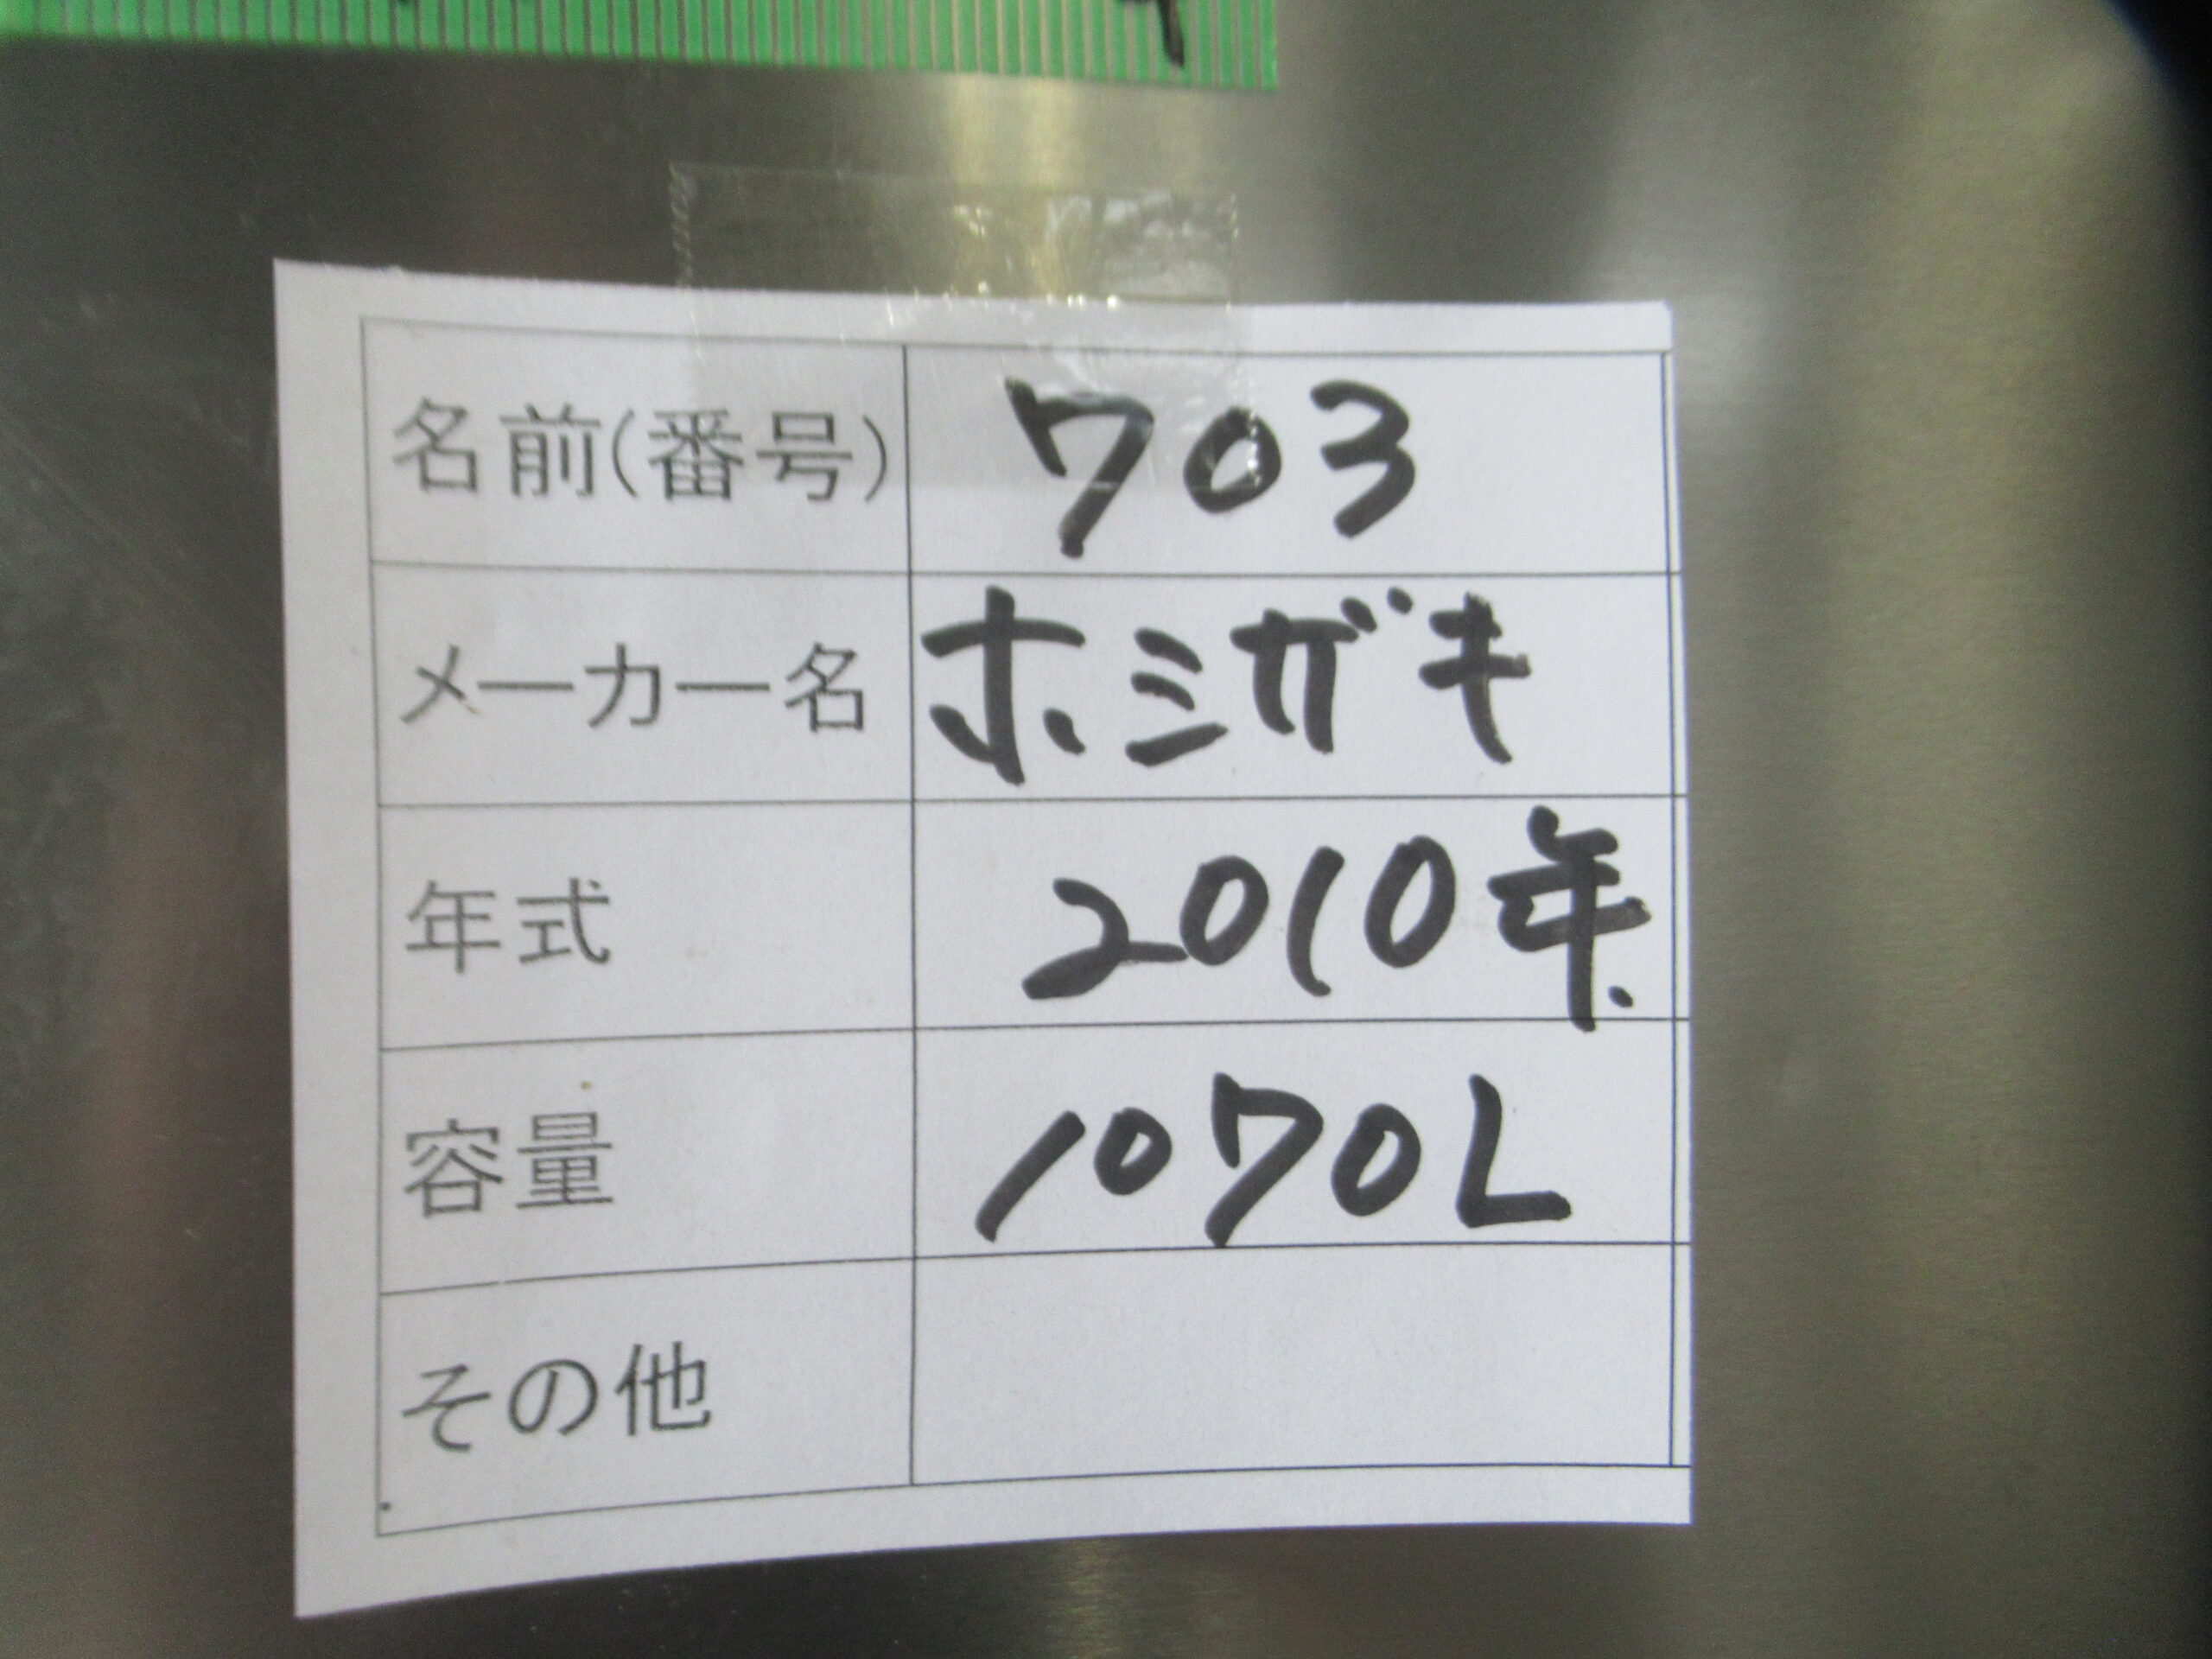 名前(番号) 703
メーカー名 ホシザキ
年式 2010年.
容量 1070L
その他